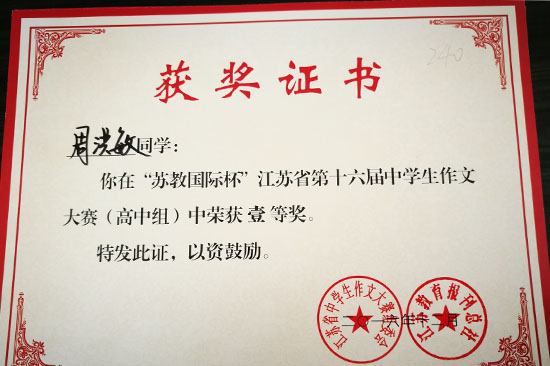 获奖证书
240
周洪敏同学：
你在“苏教国际杯”江苏省第十六届中学生作文
大赛（高中组）中荣获壹等奖。
特发此证，以资鼓励。
江苏省中学生作文大赛组委会
江苏教育报刊总社
二〇一六年十二月